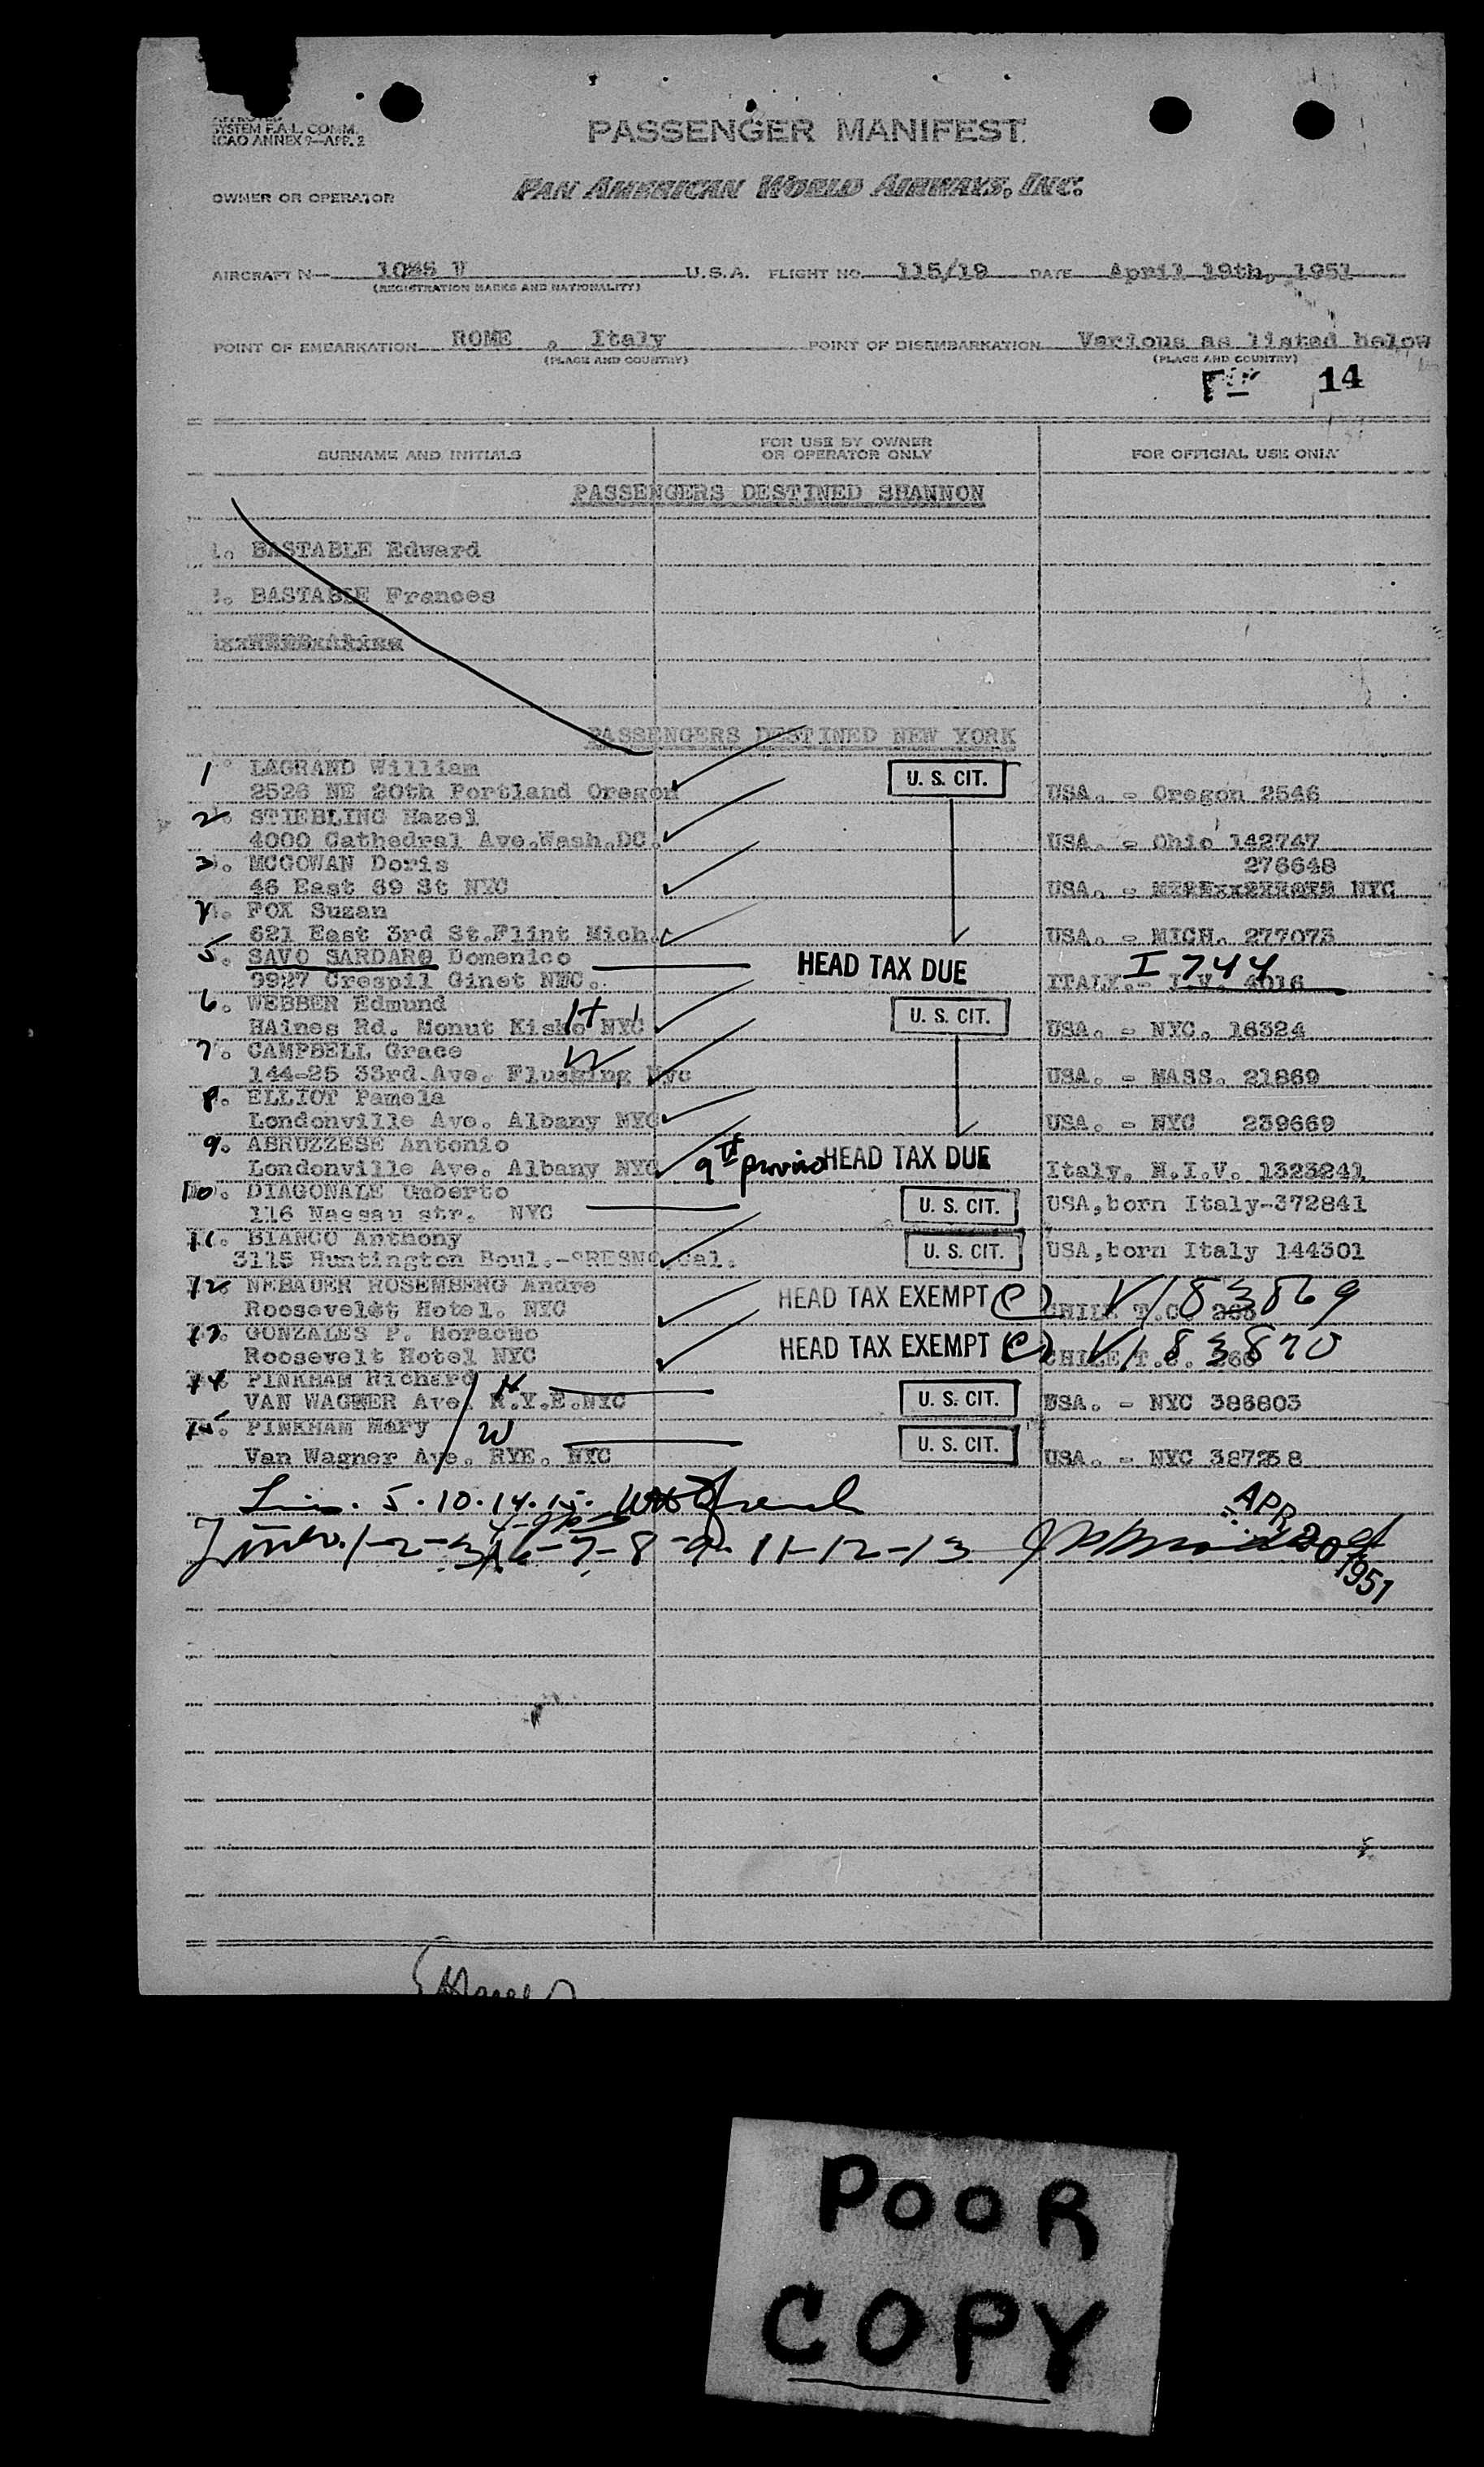 SYSTEM F.A.L. COMM.
ICAO ANNEX 9—APP. 2
PASSENGER MANIFEST
OWNER OR OPERATOR PAN AMERICAN WORLD AIRWAYS, INC.
AIRCRAFT N— V U.S.A. FLIGHT NO. 115/19 DATE April 19th, 1951
(REGISTRATION MARKS AND NATIONALITY)
POINT OF EMBARKATION ROME , Italy POINT OF DISEMBARKATION Various as listed below
(PLACE AND COUNTRY) (PLACE AND COUNTRY)
14
SURNAME AND INITIALS FOR USE BY OWNER OR OPERATOR ONLY FOR OFFICIAL USE ONLY
PASSENGERS DESTINED SHANNON
1. BASTABLE Edward
. BASTABLE Frances
PASSENGERS DESTINED NEW YORK
1 LAGRAND William U. S. CIT.
2526 NE 20th Portland Oregon USA. - Oregon 2546
2. STIEBLING Hazel
4000 Cathedral Ave.Wash.DC. USA. - Ohio 142747
3. MCGOWAN Doris 276648
46 East 69 St NYC USA. - NYC
4. FOX Susan
621 East 3rd St.Flint Mich. USA. - MICH. 277073
5. SAVO SARDARO Domenico HEAD TAX DUE I 744
9927 Crespil Ginet NYC. ITALY.- I.V. 4016
6. WEBBER Edmund H U. S. CIT.
HAines Rd. Monut Kisko NYC USA. - NYC. 16324
7. CAMPBELL Grace W
144-25 33rd.Ave. Flushing Nyc USA. - MASS. 21869
8. ELLIOT Pamela
Londonville Ave. Albany NYC USA. - NYC 239669
9. ABRUZZESE Antonio 9th proviso HEAD TAX DUE
Londonville Ave. Albany NYC Italy. N.I.V. 1323241
10. DIAGONALE Umberto U. S. CIT. USA,born Italy-372841
116 Nassau str. NYC
11. BIANCO Anthony U. S. CIT. USA,born Italy 144301
3115 Huntington Boul.-FRESNO,Cal.
12. NEBAUER ROSEMBERG Andre HEAD TAX EXEMPT (C) V183869
Roosevelt Hotel. NYC CHILE T.C. 265
13. GONZALES P. Horacho HEAD TAX EXEMPT (C) V183870
Roosevelt Hotel NYC CHILE T.C. 266
14. PINKHAM Richard H
VAN WAGNER Ave. R.Y.E.NYC U. S. CIT. USA. - NYC 386803
15. PINKHAM Mary W U. S. CIT.
Van Wagner Ave. RYE. NYC USA. - NYC 387258
5.10.14.15.
1-2-3 6-7-8-9-11-12-13 APR 20 1951
POOR
COPY